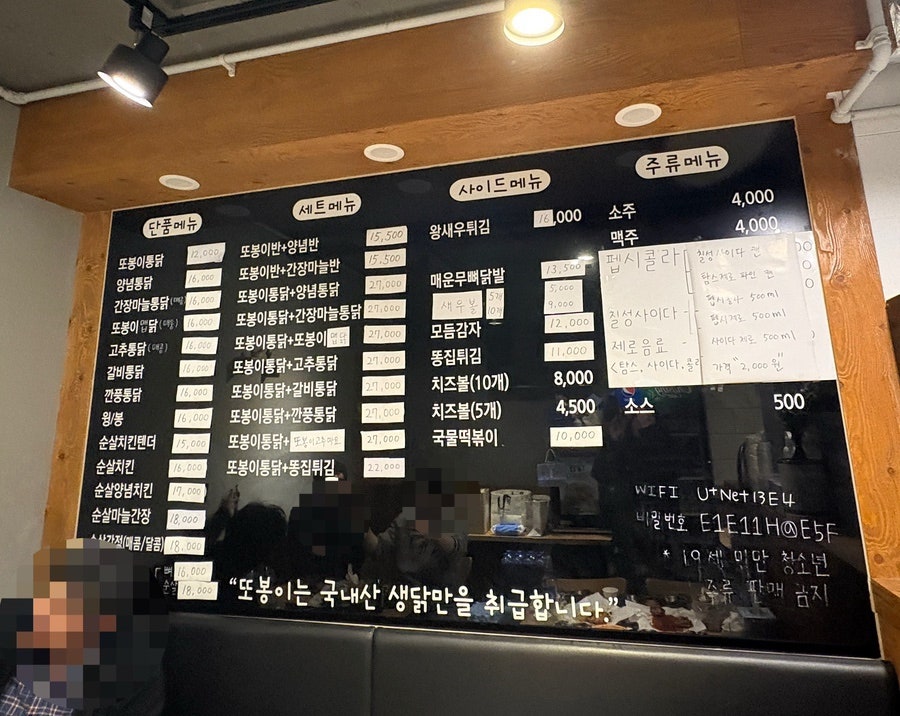 단품메뉴
또봉이통닭 12,000
양념통닭 16,000
간장마늘통닭 16,000
또봉이 맵닭 16,000
고추통닭 16,000
갈비통닭 16,000
깐풍통닭 16,000
윙/봉 16,000
순살치킨텐더 15,000
순살치킨 16,000
순살양념치킨 17,000
순살마늘간장 18,000
(매콤/달콤) 18,000
16,000
순살 18,000
세트메뉴
또봉이반+양념반 15,500
또봉이반+간장마늘반 15.500
또봉이통닭+양념통닭 27,000
또봉이통닭+간장마늘통닭 27,000
또봉이통닭+또봉이 맵닭 27,000
또봉이통닭+고추통닭 27,000
또봉이통닭+갈비통닭 27,000
또봉이통닭+깐풍통닭 27,000
또봉이통닭+또봉이고추마요 27,000
또봉이통닭+똥집튀김 22,000
사이드메뉴
왕새우튀김 16,000
매운무뼈닭발 13,500
새우볼 5개 5,000
10개 9,000
모듬감자 12,000
똥집튀김 11,000
치즈볼(10개) 8,000
치즈볼(5개) 4,500
국물떡볶이 10,000
주류메뉴
소주 4,000
맥주 4,000
펩시콜라
칠성사이다
제로음료
<탐스, 사이다, 콜라
칠성사이다 캔
탐스제로 파인 캔
펩시콜라 500ml
펩시제로 500ml
사이다 제로 500ml
가격 "2,000원"
소스 500
WIFI U+Net13E4
비밀번호 E1E11H@E5F
* 19세 미만 청소년
주류 판매 금지
"또봉이는 국내산 생닭만을 취급합니다."